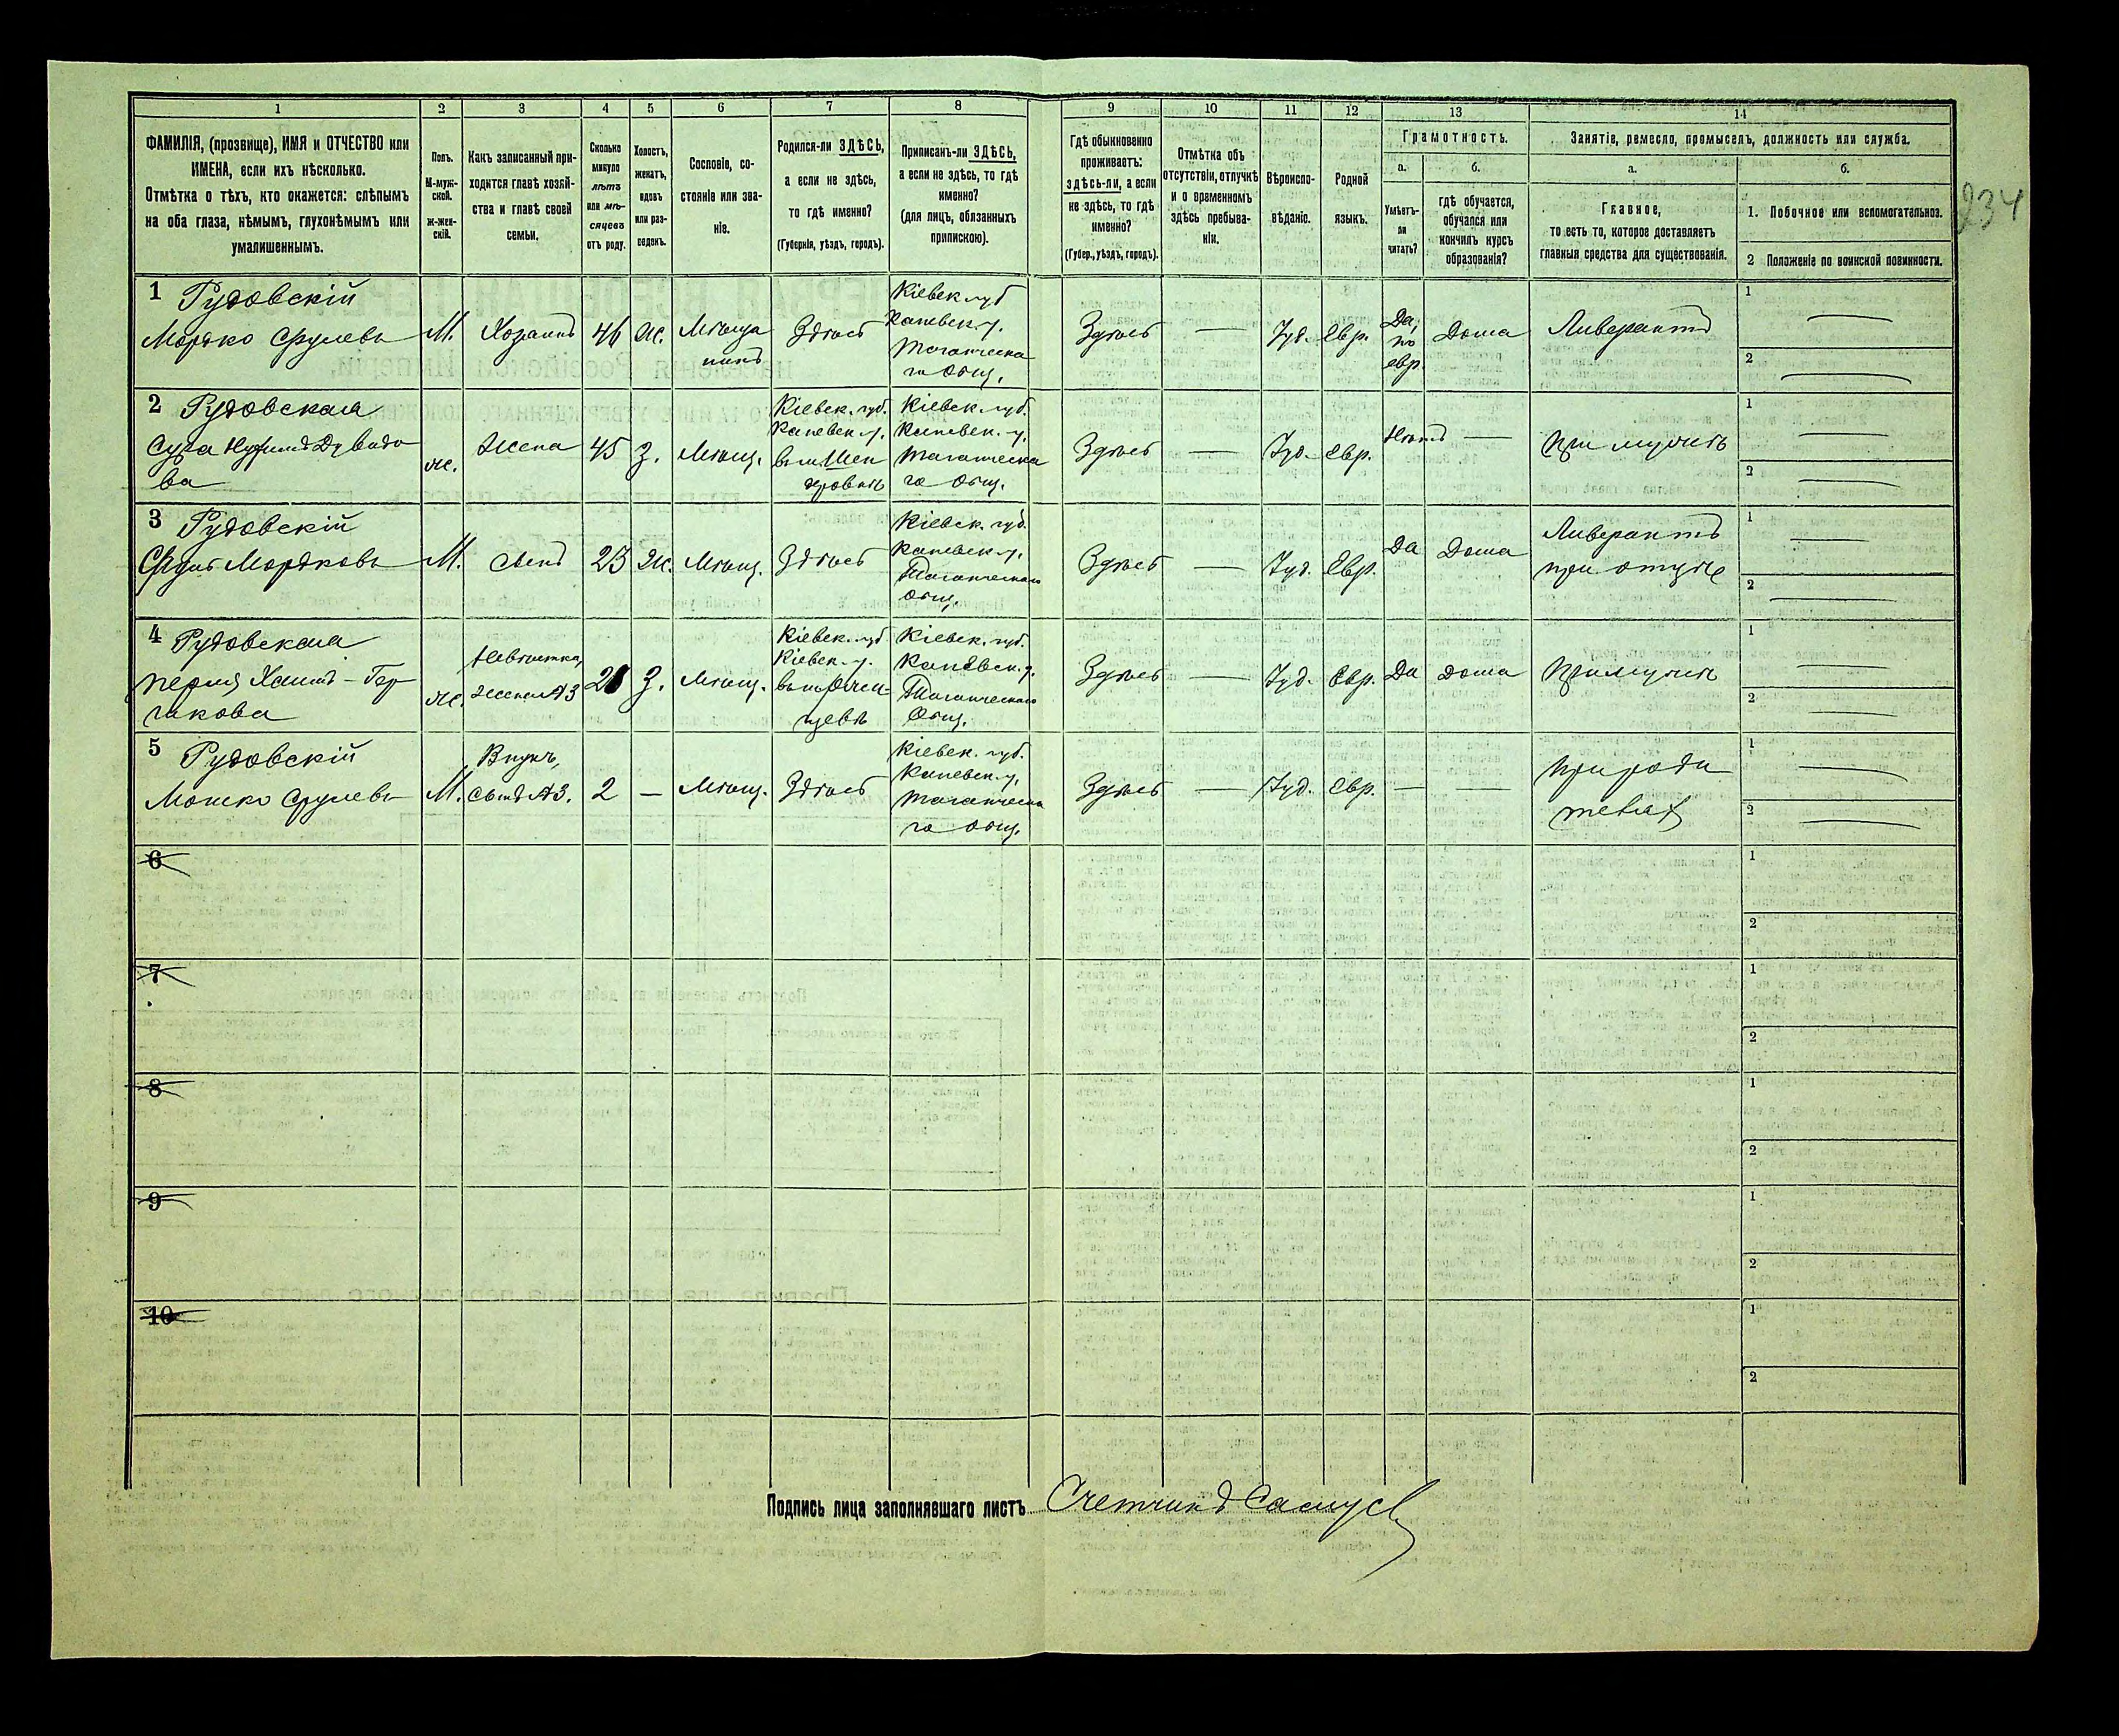 234
1
2
3
4
5
6
7
8
9
10
11
12
13
14
ФАМИЛІЯ, (прозвище), ИМЯ и ОТЧЕСТВО или
ИМЕНА, если ихъ нѣсколько.
Отмѣтка о тѣхъ, кто окажется: слѣпымъ
на оба глаза, нѣмымъ, глухонѣмымъ или
умалишеннымъ.
Полъ.
М-муж-
ской.
Ж-жен-
скій.
Какъ записанный при-
ходится главѣ хозяй-
ства и главѣ своей
семьи.
Сколько
минуло
лѣтъ
или мѣ-
сяцевъ
отъ роду.
Холостъ,
женатъ,
вдовъ
или раз-
веденъ.
Сословіе, со-
стояніе или зва-
ніе.
Родился-ли ЗДѢСЬ,
а если не здѣсь,
то гдѣ именно?
(Губернія, уѣздъ, городъ).
Приписанъ-ли ЗДѢСЬ,
а если не здѣсь, то гдѣ
именно?
(для лицъ, обязанныхъ
припискою).
Гдѣ обыкновенно
проживаетъ:
здѣсь-ли, а если
не здѣсь, то гдѣ
именно?
(Губер., уѣздъ, городъ).
Отмѣтка объ
отсутствіи, отлучкѣ
и о временномъ
здѣсь пребыва-
ніи.
Вѣроиспо-
вѣданіе.
Родной
языкъ.
Грамотность.
а.
Умѣетъ-
ли
читать?
б.
гдѣ обучается,
обучался или
кончилъ курсъ
образованія?
Занятіе, ремесло, промыселъ, должность или служба.
а.
Главное,
то есть то, которое доставляетъ
главныя средства для существованія.
б.
1. Побочное или вспомогательное.
2 Положеніе по воинской повинности.
1 Рудовскій
Мордко Срулевъ
М.
Хозяинъ
46
Ж.
Мѣща
нинъ
Здѣсь
Кіевск. губ
Каневск. у.
Здѣсь
—
Іуд.
Евр.
Да,
по
евр.
Дома
Ливерантъ
1 —
2 —
2 Рудовская
ж.
Жена
45
З.
Мѣщ.
Кіевск. губ.
Каневск. у.
Кіевск. губ.
Каневск. у.
го Общ.
Здѣсь
—
Іуд.
Евр.
Нѣтъ
—
При мужѣ
1 —
2 —
3 Рудовскій
Сруль Мордковъ
М.
Сынъ
23
Ж.
Мѣщ.
Здѣсь
Кіевск. губ.
Каневск. у.
Общ.
Здѣсь
—
Іуд.
Евр.
Да
Дома
Ливерантъ
при отцѣ
1 —
2 —
4 Рудовская
ж.
Невѣстка,
жена №3
З.
Мѣщ.
Кіевск. губ
Кіевск. у.
Кіевск. губ.
Каневск. у.
Общ.
Здѣсь
—
Іуд.
Евр.
Да
Дома
При мужѣ
1 —
2 —
5 Рудовскій
Мошко Срулевъ
М.
Внукъ,
сынъ №3.
2
—
Мѣщ.
Здѣсь
Кіевск. губ.
Каневск. у.
го Общ.
Здѣсь
—
Іуд.
Евр.
—
—
При роди
теляхъ
1 —
2 —
6
1
2
7
1
2
8
1
2
9
1
2
10
1
2
Подпись лица заполнявшаго листъ Счетчикъ